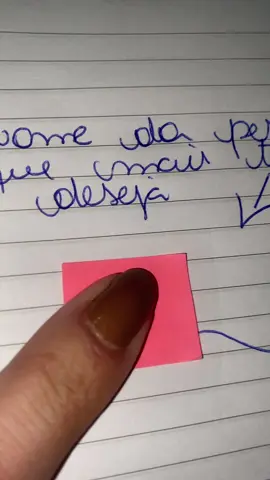 nome da
que mais
deseja